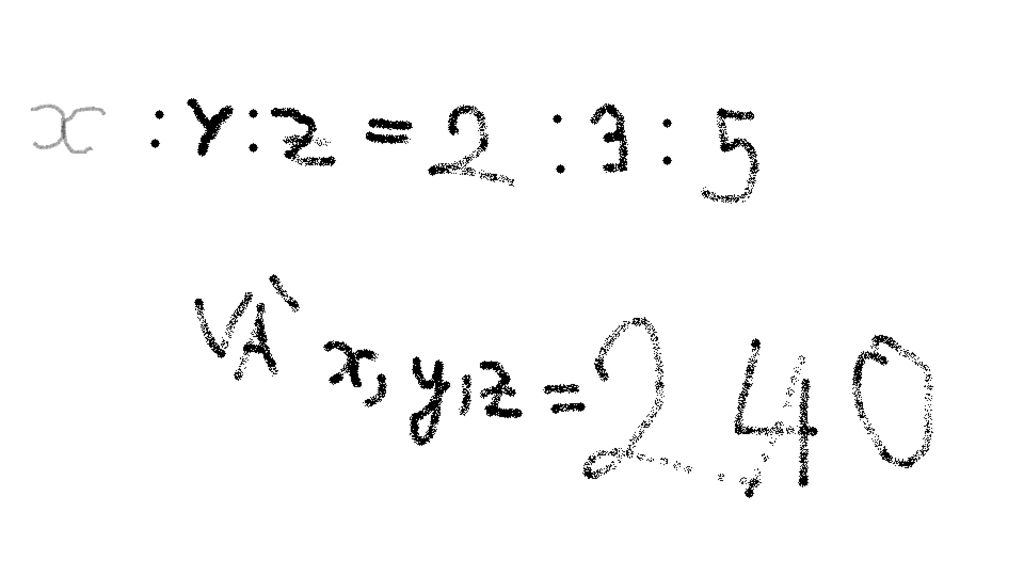 x : Y : z = 2 : 3 : 5
VÀ x, y, z = 240